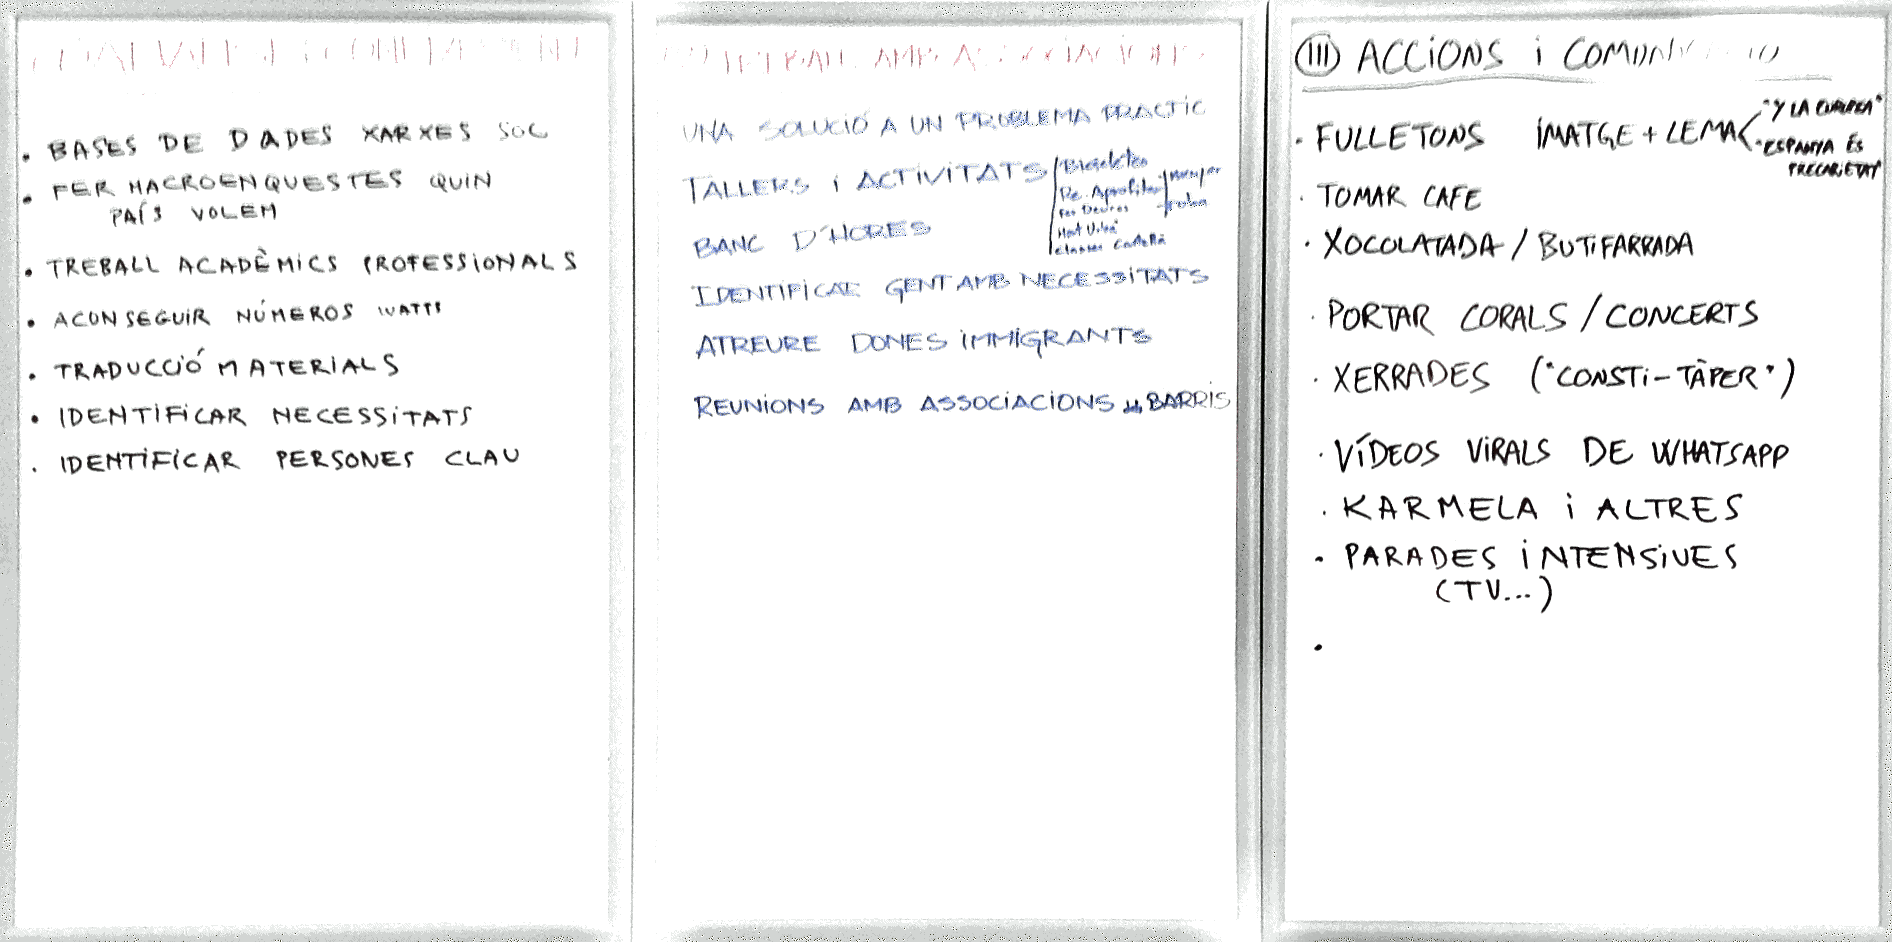 • BASES DE DADES XARXES SOC
• FER MACROENQUESTES QUIN
PAÍS VOLEM
• TREBALL ACADÈMICS PROFESSIONALS
• ACONSEGUIR NÚMEROS
• TRADUCCIÓ MATERIALS
• IDENTIFICAR NECESSITATS
• IDENTIFICAR PERSONES CLAU
TREBALL AMB ASSOCIACIONS
UNA SOLUCIÓ A UN PROBLEMA PRACTIC
TALLERS i ACTIVITATS
Bicicletes
Re. Aprofitar menjar
roba
Fer Deures
Hort Urbà
classes Català
BANC D'HORES
IDENTIFICAR GENT AMB NECESSITATS
ATREURE DONES IMMIGRANTS
REUNIONS AMB ASSOCIACIONS BARRIS
III ACCIONS i COMUNICACIO
• FULLETONS IMATGE + LEMA
"Y LA CURREA"
• ESPANYA ÉS
PRECARIETAT
• TOMAR CAFE
• XOCOLATADA / BUTIFARRADA
• PORTAR CORALS / CONCERTS
• XERRADES ("CONSTI-TÀPER")
• VÍDEOS VIRALS DE WHATSAPP
• KARMELA i ALTRES
• PARADES INTENSIVES
(TV...)
•